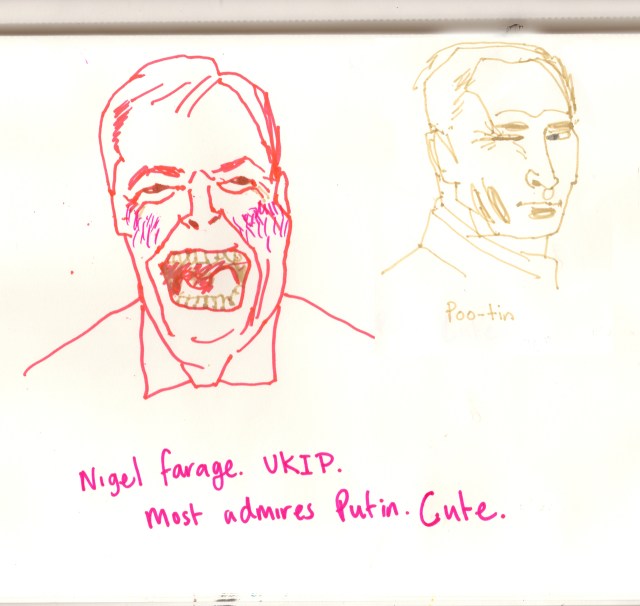 Poo-tin
Nigel farage. UKIP.
most admires Putin. Cute.